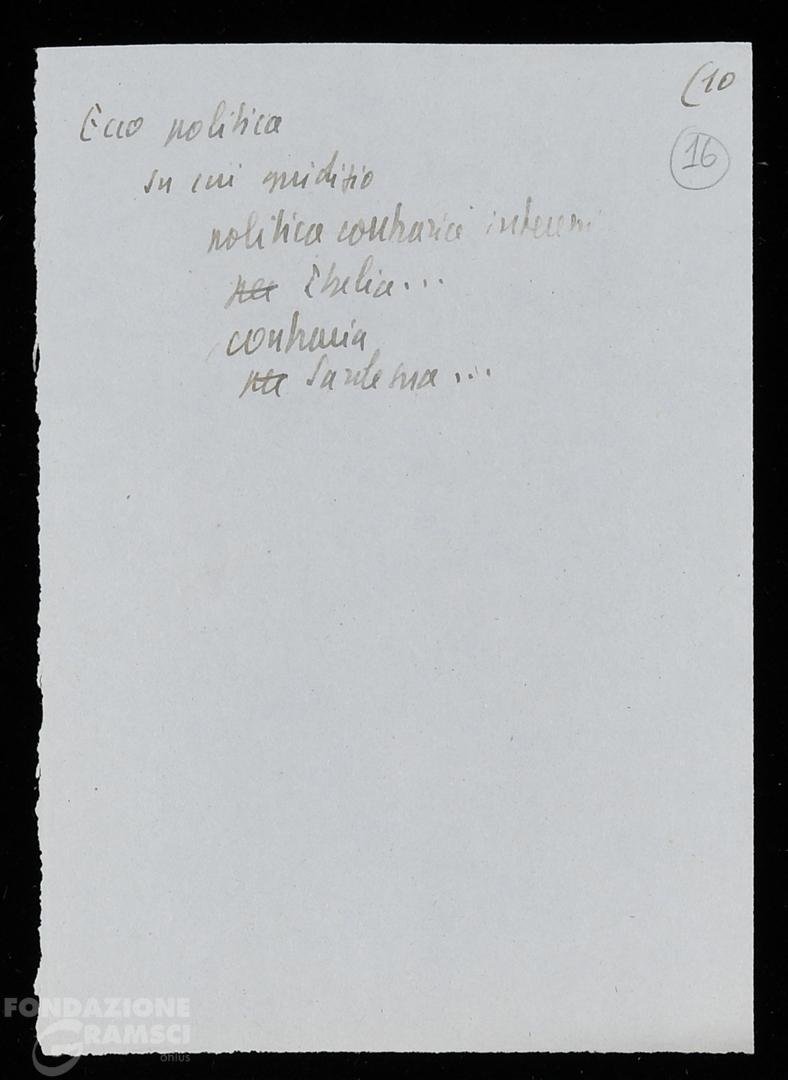 (10
16
Ecco politica
su cui giudizio
politica contraria interessi
per Italia...
contraria
per Sardegna...
FONDAZIONE
GRAMSCI
onlus